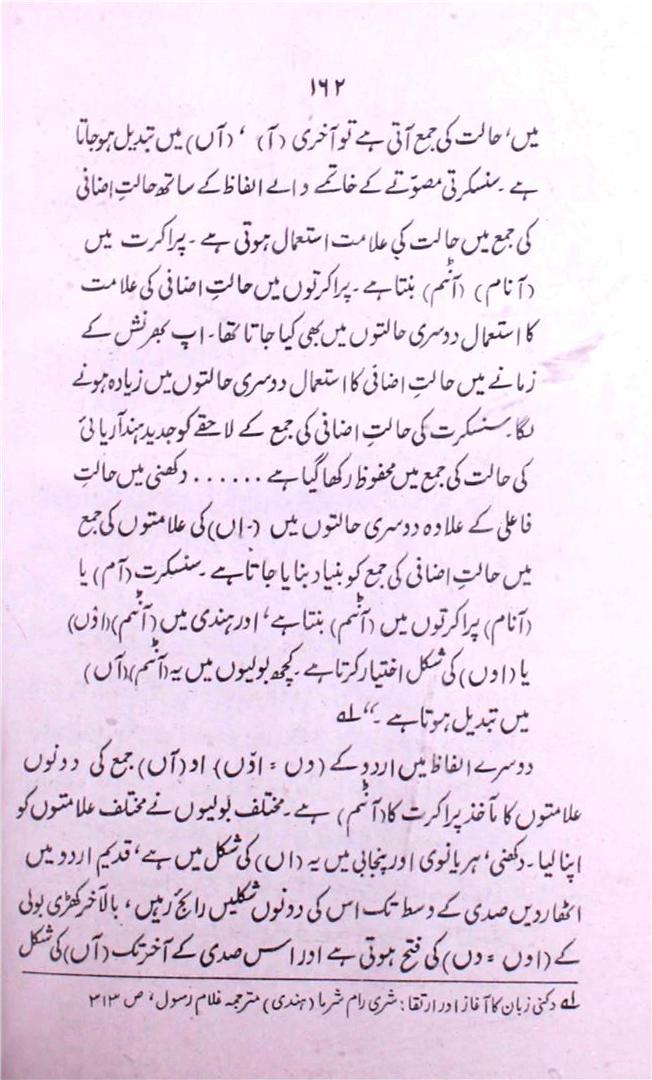 ۱۶۲
میں، حالت کی جمع آتی ہے تو آخری (آ) ، (آں) میں تبدیل ہو جاتا
ہے۔ سنسکرتی مصوّتے کے خاتمے والے الفاظ کے ساتھ حالتِ اضافی
کی جمع میں حالت کی علامت استعمال ہوتی ہے۔ پراکرت میں
(آنام) (آنہم) بنتا ہے۔ پراکرتوں میں حالتِ اضافی کی علامت
کا استعمال دوسری حالتوں میں بھی کیا جاتا تھا۔ اپ بھرنش کے
زمانے میں حالتِ اضافی کا استعمال دوسری حالتوں میں زیادہ ہونے
لگا۔ سنسکرت کی حالتِ اضافی کی جمع کے لاحقے کو جدید ہند آریائی
کی حالت کی جمع میں محفوظ رکھا گیا ہے ...... دکھنی میں حالتِ
فاعلی کے علاوہ دوسری حالتوں میں (-اں) کی علامتوں کی جمع
میں حالتِ اضافی کی جمع کو بنیاد بنایا جاتا ہے۔ سنسکرت (آم) یا
(آنام) پراکرتوں میں (آنہم) بنتا ہے، اور ہندی میں (آنہم) (اوٗں)
یا (اوں) کی شکل اختیار کرتا ہے۔ کچھ بولیوں میں یہ (آنہم) (آں)
میں تبدیل ہوتا ہے۔“ لہ
دوسرے الفاظ میں اردو کے (وں = اوٗں) او (آں) جمع کی دونوں
علامتوں کا مآخذ پراکرت کا (آنہم) ہے۔ مختلف بولیوں نے مختلف علامتوں کو
اپنا لیا۔ دکھنی، ہریانوی اور پنجابی میں یہ (اں) کی شکل میں ہے، قدیم اردو میں
اٹھارویں صدی کے وسط تک اس کی دونوں شکلیں رائج رہیں، بالآخر کھڑی بولی
کے (اوں = وں) کی فتح ہوتی ہے اور اسس صدی کے آخر تک (آں) کی شکل
لہ دکنی زبان کا آغاز اور ارتقا: شری رام شرما (ہندی) مترجمہ غلام رسول، ص ۳۱۳